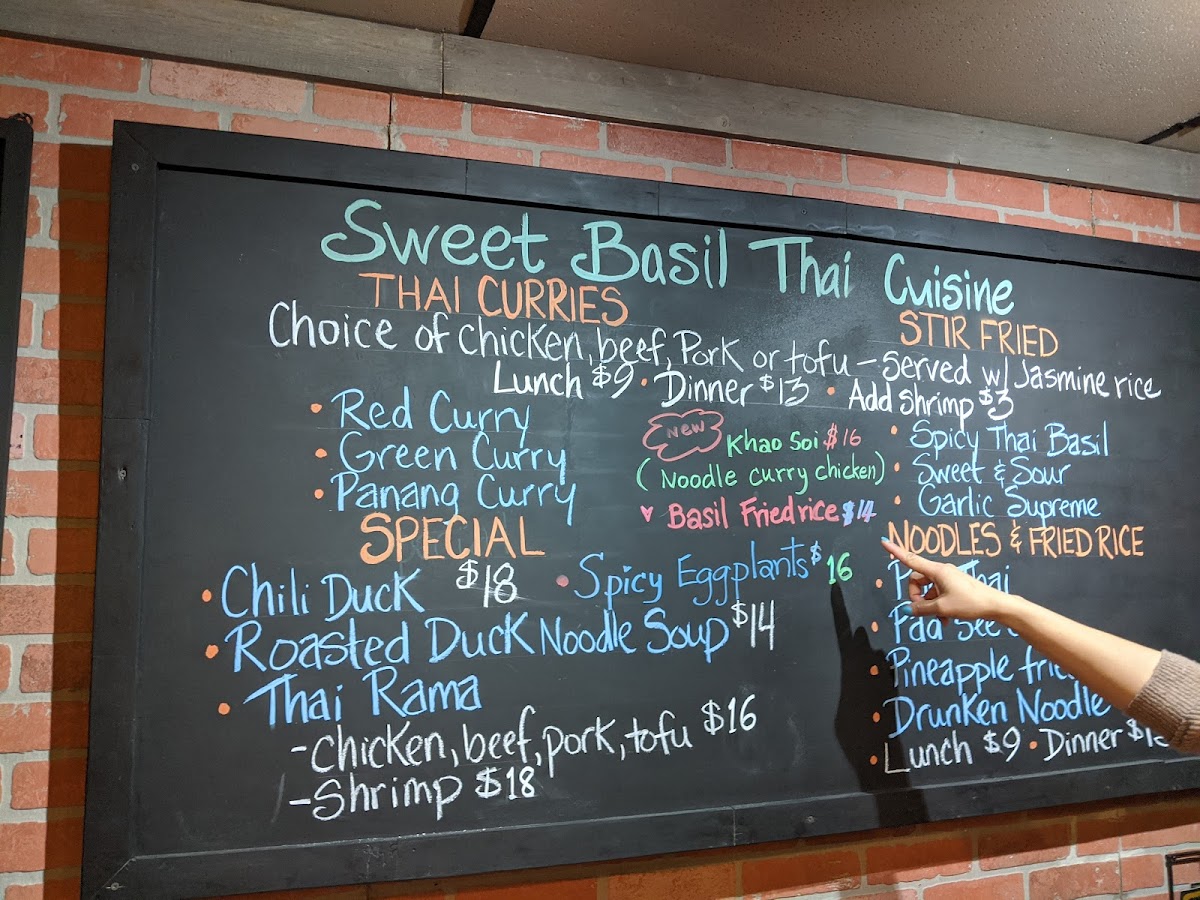 Sweet Basil Thai Cuisine
THAI CURRIES
STIR FRIED
Choice of chicken, beef, Pork or tofu - served w/ Jasmine rice
Lunch $9 · Dinner $13 · Add shrimp $3
• Red Curry
• Green Curry
• Panang Curry
NEW
Khao Soi $16
(Noodle curry chicken)
♥ Basil Fried rice $14
• Spicy Thai Basil
• Sweet & Sour
• Garlic Supreme
SPECIAL
• Chili Duck $18
• Spicy Eggplants $16
• Roasted Duck Noodle Soup $14
• Thai Rama
- chicken, beef, pork, tofu $16
- Shrimp $18
NOODLES & FRIED RICE
• Thai
• Pad See
• Pineapple
• Drunken Noodle
• Lunch $9 · Dinner